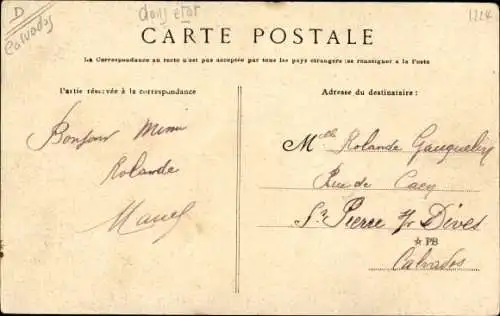 D
Calvados
dans état
1224
CARTE POSTALE
La Correspondance au recto n'est pas acceptée par tous les pays étrangers (se renseigner à la Poste
Partie réservée à la correspondance
Adresse du destinataire :
Bonjour Mimi
Rolande
Marcel
Melle Rolande Gauquelin
Rue de Caen
St Pierre s/r Dives
☆ PB
Calvados